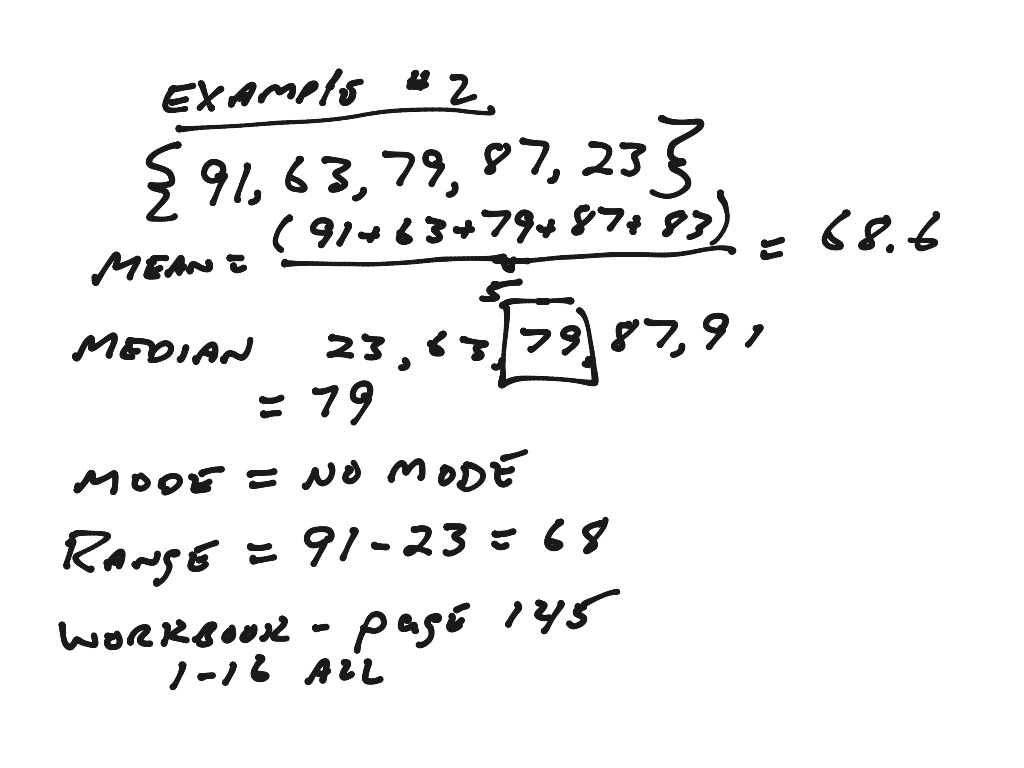 EXAMPLE #2
{91, 63, 79, 87, 23}
MEAN = (91+63+79+87+83) / 5 = 68.6
MEDIAN 23, 63, 79, 87, 91
= 79
MODE = NO MODE
RANGE = 91-23 = 68
WORKBOOK - PAGE 145
1-16 ALL